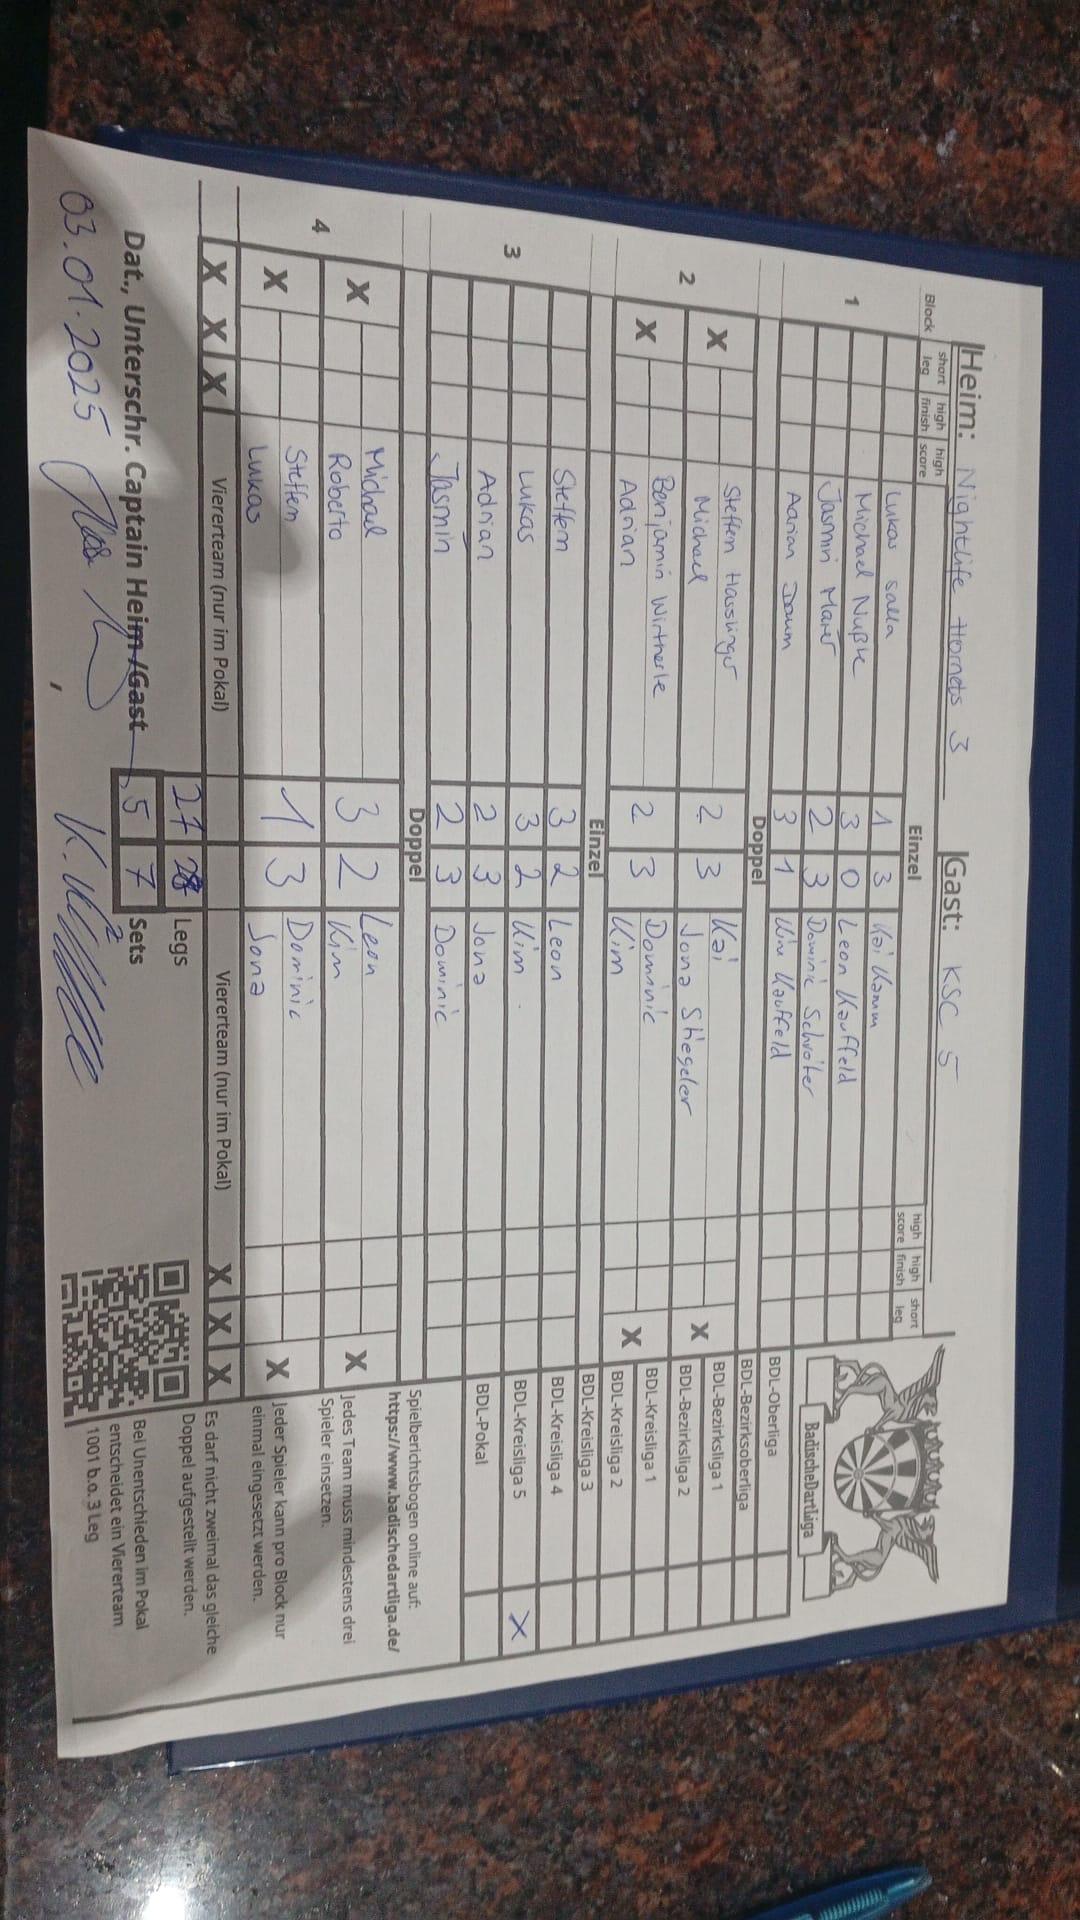 Heim: Nightlife Hornets 3 Gast: KSC 5
Block short leg high finish high score Einzel high score high finish short leg
1
Lukas Salla 1 3 Kai Kamm
Michael Nußle 3 0 Leon Kauffeld
Jasmin Maier 2 3 Dominic Schröter
Adrian Daum 3 1 Kim Kauffeld
Doppel
2
X Steffen 2 3 Kai X
Michael Jona Stiegeler
X Benjamin 2 3 Dominic X
Adrian Kim
Einzel
3
Steffen 3 2 Leon
Lukas 3 2 Kim
Adrian 2 3 Jona
Jasmin 2 3 Dominic
Doppel
4
X Michael 3 2 Leon X
Roberto Kim
X Steffen 1 3 Dominic X
Lukas Jona
X X X Viererteam (nur im Pokal) Viererteam (nur im Pokal) X X X
27 28 Legs
Dat., Unterschr. Captain Heim/Gast 5 7 Sets
03.01.2025
BadischeDartLiga
BDL-Oberliga
BDL-Bezirksoberliga
BDL-Bezirksliga 1
BDL-Bezirksliga 2
BDL-Kreisliga 1
BDL-Kreisliga 2
BDL-Kreisliga 3
BDL-Kreisliga 4
BDL-Kreisliga 5 X
BDL-Pokal
Spielberichtsbogen online auf:
https://www.badischedartliga.de/
Jedes Team muss mindestens drei
Spieler einsetzen.
Jeder Spieler kann pro Block nur
einmal eingesetzt werden.
Es darf nicht zweimal das gleiche
Doppel aufgestellt werden.
Bei Unentschieden im Pokal
entscheidet ein Viererteam
1001 b.o. 3 Leg